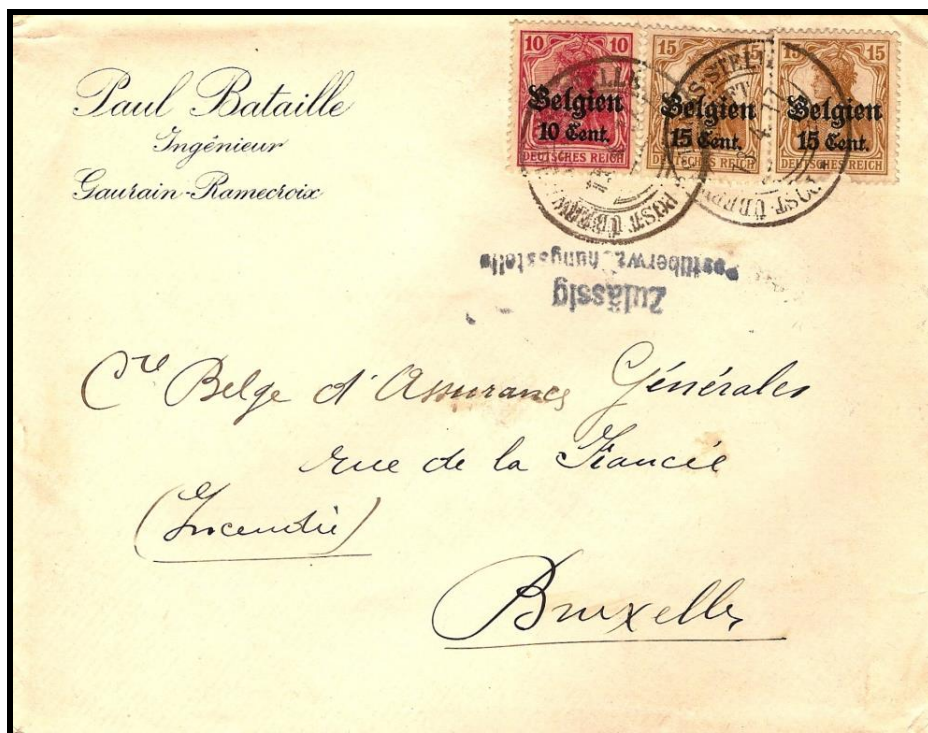 Paul Bataille
Ingénieur
Gaurain-Ramecroix
10 10
Belgien
10 Cent.
DEUTSCHES REICH
15 15
Belgien
15 Cent.
DEUTSCHES REICH
15 15
Belgien
15 Cent.
DEUTSCHES REICH
Zulässig
Cie Belge d'Assurances Générales
rue de la Fiancée
(Incendie)
Bruxelles